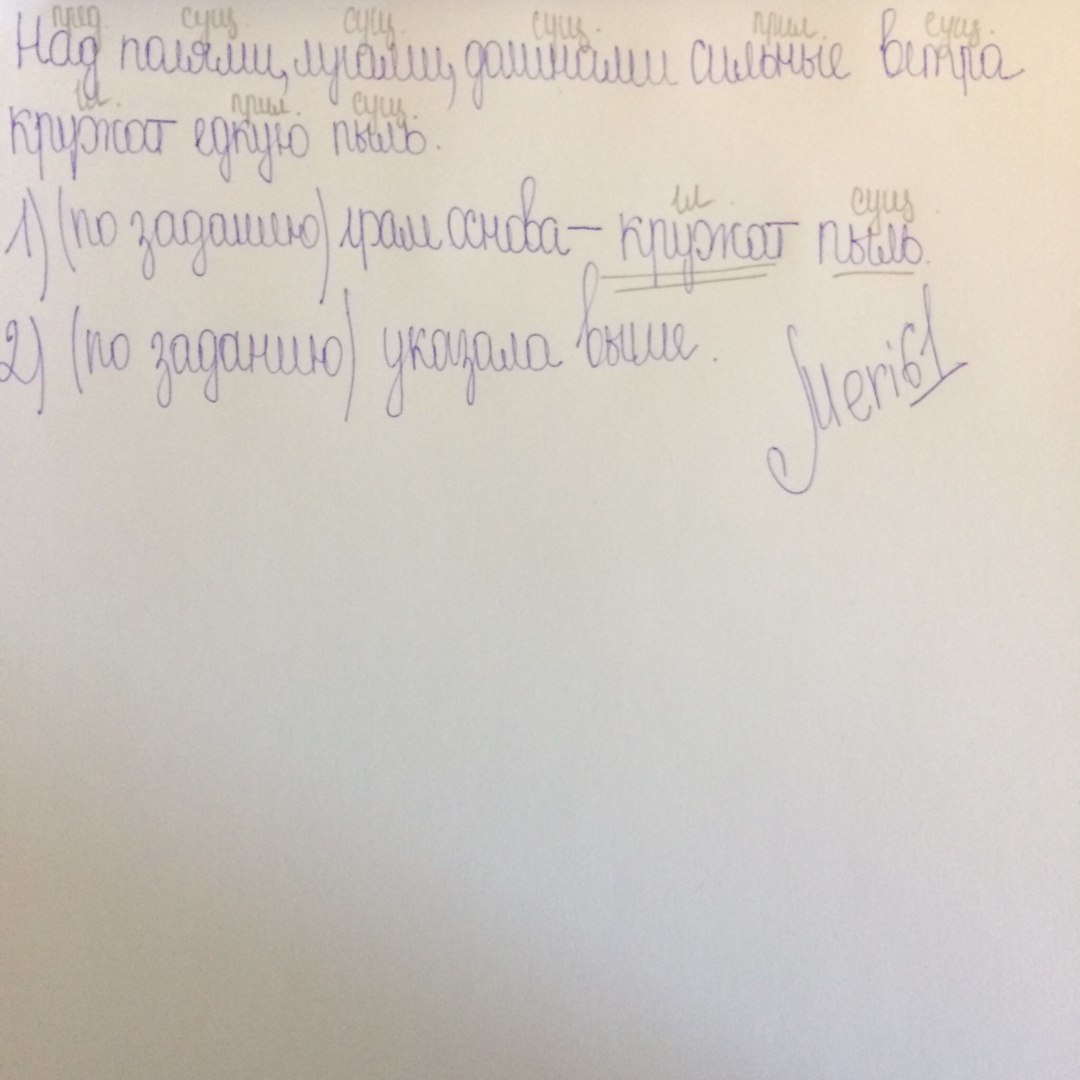 пред. сущ. сущ. сущ. прил. сущ.
Над полями, лугами, долинами сильные ветра
гл. прил. сущ.
кружат едкую пыль.
гл. сущ.
1) (по заданию) грам основа – кружат пыль.
2) (по заданию) указала выше.
Meri61